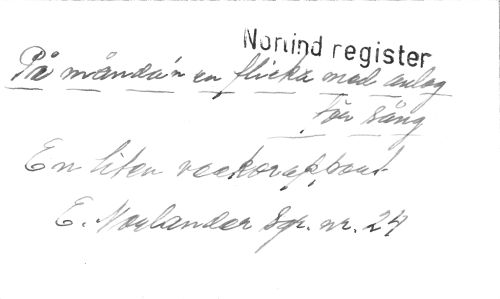 Norlind register
På månda'n en flicka med anlag
för sång
En liten veckorapport
E. Norlander Sgr. nr. 24